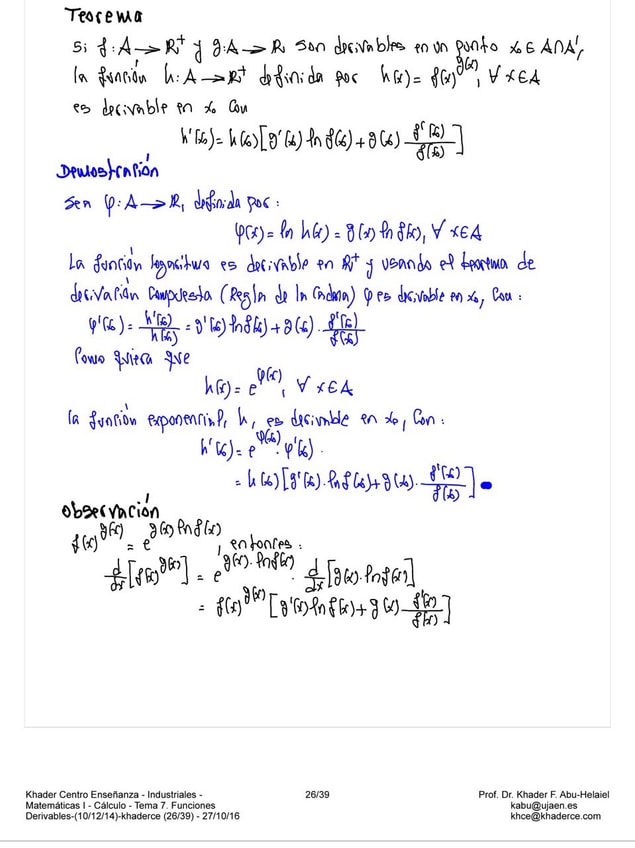 Teorema
Si f: A → ℝ⁺ y g: A → ℝ son derivables en un punto x₀ ∈ A∩A',
la función h: A → ℝ⁺ definida por h(x) = f(x)^g(x), ∀ x∈A
es derivable en x₀ con
h'(x₀) = h(x₀)[g'(x₀) ln f(x₀) + g(x₀) f'(x₀)/f(x₀)]
Demostración
Sea φ: A → ℝ, definida por:
φ(x) = ln h(x) = g(x) ln f(x), ∀ x∈A
La función logaritmo es derivable en ℝ⁺ y usando el teorema de
derivación compuesta (Regla de la Cadena) φ es derivable en x₀, con:
φ'(x₀) = h'(x₀)/h(x₀) = g'(x₀) ln f(x₀) + g(x₀) · f'(x₀)/f(x₀)
Como quiera que
h(x) = e^φ(x), ∀ x∈A
la función exponencial, h, es derivable en x₀, con:
h'(x₀) = e^φ(x₀) · φ'(x₀).
= h(x₀)[g'(x₀) · ln f(x₀) + g(x₀) · f'(x₀)/f(x₀)]
Observación
f(x)^g(x) = e^g(x) ln f(x), entonces:
d/dx [f(x)^g(x)] = e^g(x)·ln f(x) · d/dx [g(x) · ln f(x)]
= f(x)^g(x) [g'(x) ln f(x) + g(x) f'(x)/f(x)]
Khader Centro Enseñanza - Industriales -
Matemáticas I - Cálculo - Tema 7. Funciones
Derivables-(10/12/14)-khaderce (26/39) - 27/10/16
26/39
Prof. Dr. Khader F. Abu-Helaiel
kabu@ujaen.es
khce@khaderce.com